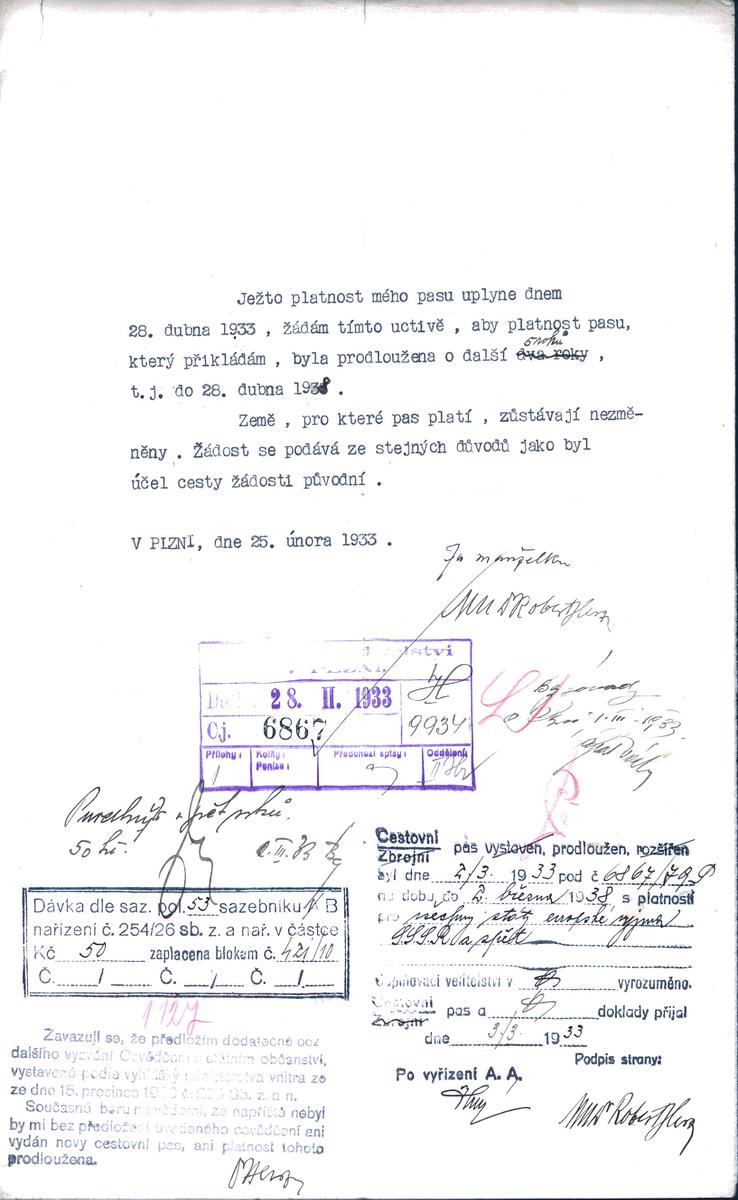 Ježto platnost mého pasu uplyne dnem
28. dubna 1933 , žádám tímto uctivě , aby platnost pasu,
5 roků
který přikládám , byla prodloužena o další dva roky ,
t.j. do 28. dubna 1938 .
Země , pro které pas platí , zůstávají nezmě-
něny . Žádost se podává ze stejných důvodů jako byl
účel cesty žádosti původní .
V PLZNI, dne 25. února 1933 .
Za manželku
MUDr Robert Herz
V PLZNI.
28. II. 1933
9934
Č.j. 6867
Přílohy: Kolky: Peníze: Předchozí spisy: Oddělení:
1
1. III. 1933
50 Kč.
2. III. 33
Dávka dle saz. pol. 53 sazebníku B
nařízení č. 254/26 sb. z. a nař. v částce
Kč 50 zaplacena blokem č. 421/10
Č. / Č. / Č. /
1127
Zavazuji se, že předložím dodatečně bez
dalšího vyzvání Osvědčení o státním občanství,
vystavené podle vyhlášky ministerstva vnitra ze
ze dne 15. prosince Sb. z. a n.
Současně beru na vědomí, že napříště nebyl
by mi bez předložení uvedeného osvědčení ani
vydán nový cestovní pas, ani platnost tohoto
prodloužena.
Herz
Cestovní
Zbrojní pas vystaven, prodloužen, rozšířen
byl dne 2/3. 1933 pod č 6867/79 P
na dobu do 2. března 1938, s platností
pro všechny státy evropské vyjma
SSSR a zpět
Doplňovací velitelství v vyrozuměno.
Cestovní
Zbrojní pas a doklady přijal
dne 3/3. 1933
Podpis strany:
Po vyřízení A. A.
MUDr Robert Herz